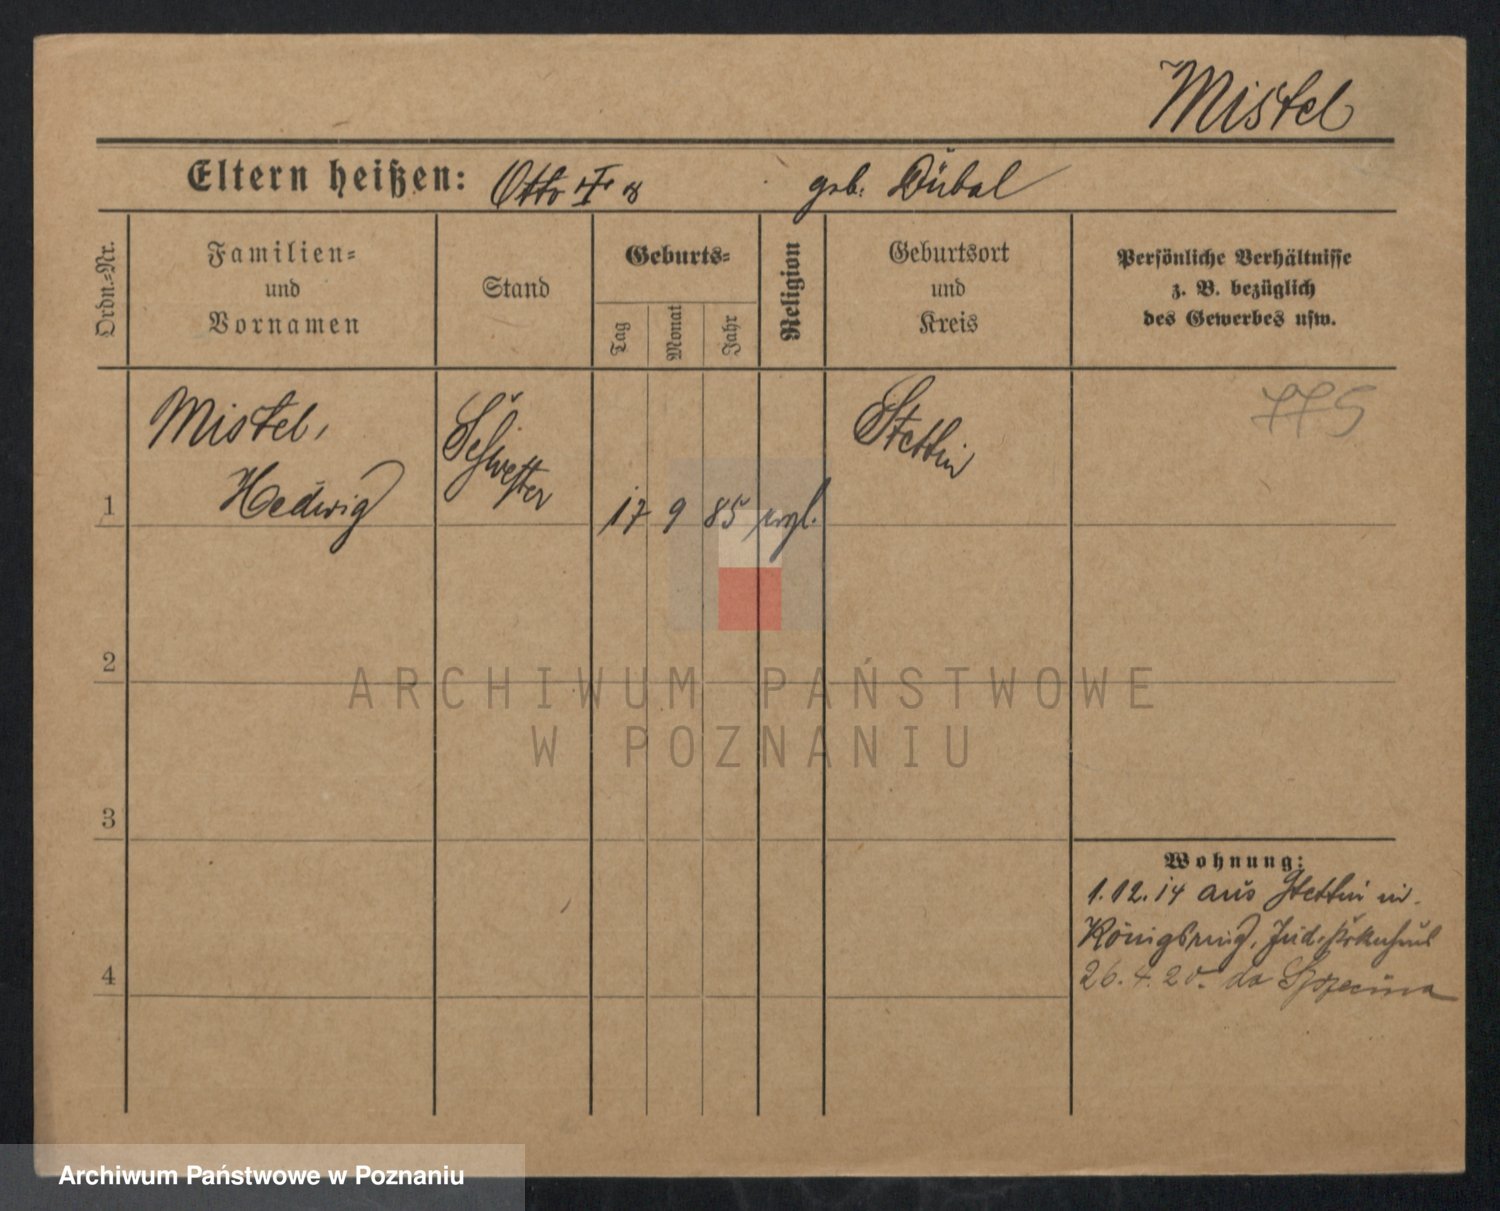 Mistel
Eltern heißen: Otto geb. Dübal
Ordn.-Nr.
Familien-
und
Vornamen
Stand
Geburts-
Tag
Monat
Jahr
Religion
Geburtsort
und
Kreis
Persönliche Verhältnisse
z. B. bezüglich
des Gewerbes usw.
Mistel,
Hedwig
Schwester
1
17 9 85 evgl.
Stettin
775
2
3
4
Wohnung:
1.12.14 aus Stettin
Königsring, Jüd.
26.4.20. do Szczecina
ARCHIWUM PAŃSTWOWE
W POZNANIU
Archiwum Państwowe w Poznaniu